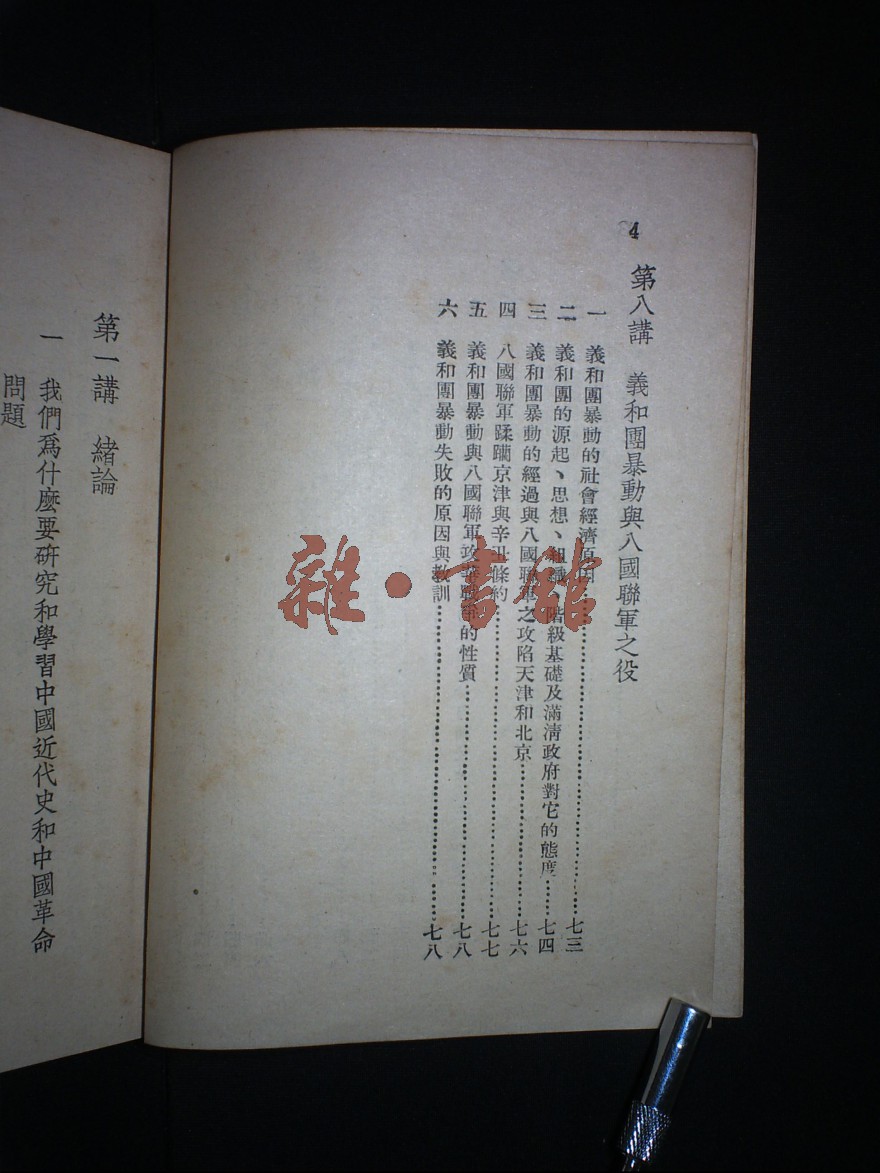 4
第八講　義和團暴動與八國聯軍之役
一　義和團暴動的社會經濟原因……七三
二　義和團的源起、思想、組織、階級基礎及滿清政府對它的態度……七四
三　義和團暴動的經過與八國聯軍之攻陷天津和北京……七六
四　八國聯軍蹂躪京津與辛丑條約……七七
五　義和團暴動與八國聯軍攻華戰爭的性質……七八
六　義和團暴動失敗的原因與教訓……七八
第一講　緒論
一　我們爲什麼要研究和學習中國近代史和中國革命
問題
雜·書館